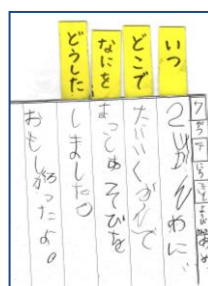 いつ
どこで
なにを
どうした
2じかんめに、
たいいくかんで
まっとあそびを
しました。
おもしろかったよ。